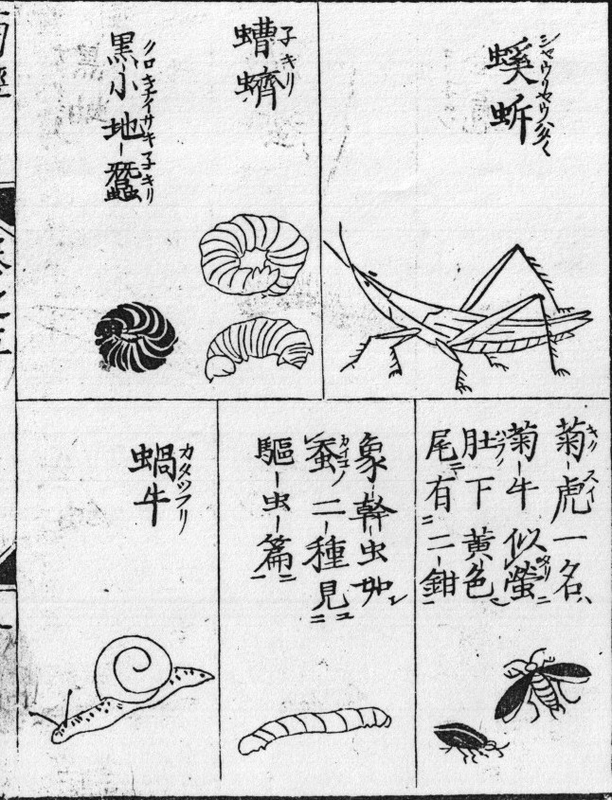 螇蚸
シャウリヤウバッタ
蠐螬
子キリ
黒小地蠶
クロキチイサキ子キリ
菊虎一名
キクスイ
菊牛似螢
肚下黄色
尾有二鉗
象幹虫如
蚕二種見
カイコノ
驅虫篇
蝸牛
カタツフリ